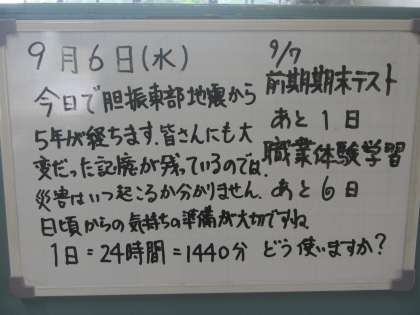 9月6日(水)
今日で胆振東部地震から
5年が経ちます。皆さんにも大
変だった記憶が残っているのでは。
災害はいつ起こるか分かりません。
日頃からの気持ちの準備が大切ですね
1日=24時間=1440分 どう使いますか?
9/7
前期期末テスト
あと1日
職業体験学習
あと6日